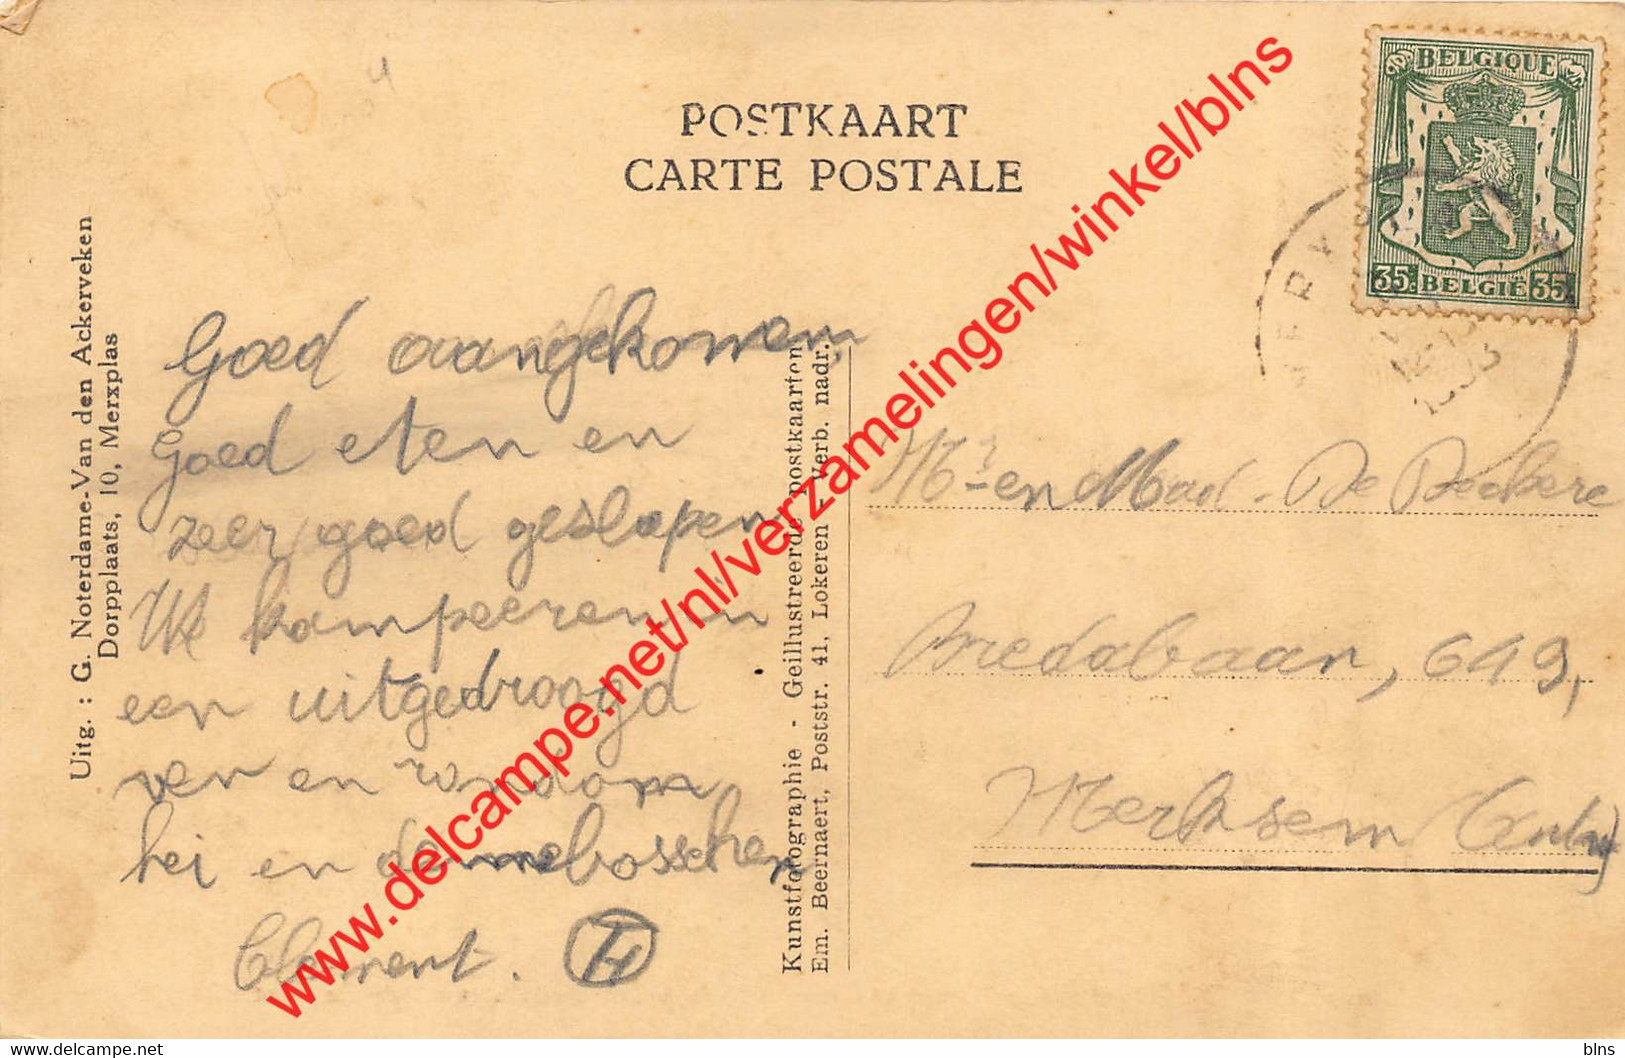 POSTKAART
CARTE POSTALE
BELGIQUE
35c BELGIË 35c
Uitg. : G. Noterdame-Van den Ackerveken
Dorpplaats, 10, Merxplas
Goed aangekomen,
goed eten en
zeer goed geslapen
We kampeeren in
een uitgedroogd
ven en rondom
hei en dennebosschen
Clement.
Kunstfotographie - Geillustreerde postkaarten
Em. Beernaert, Poststr. 41, Lokeren - Verb. nadr.
Mr en Mad. De Beckere
Bredabaan, 649,
Merksem (Antw)
www.delcampe.net/nl/verzamelingen/winkel/blns
www.delcampe.net
blns